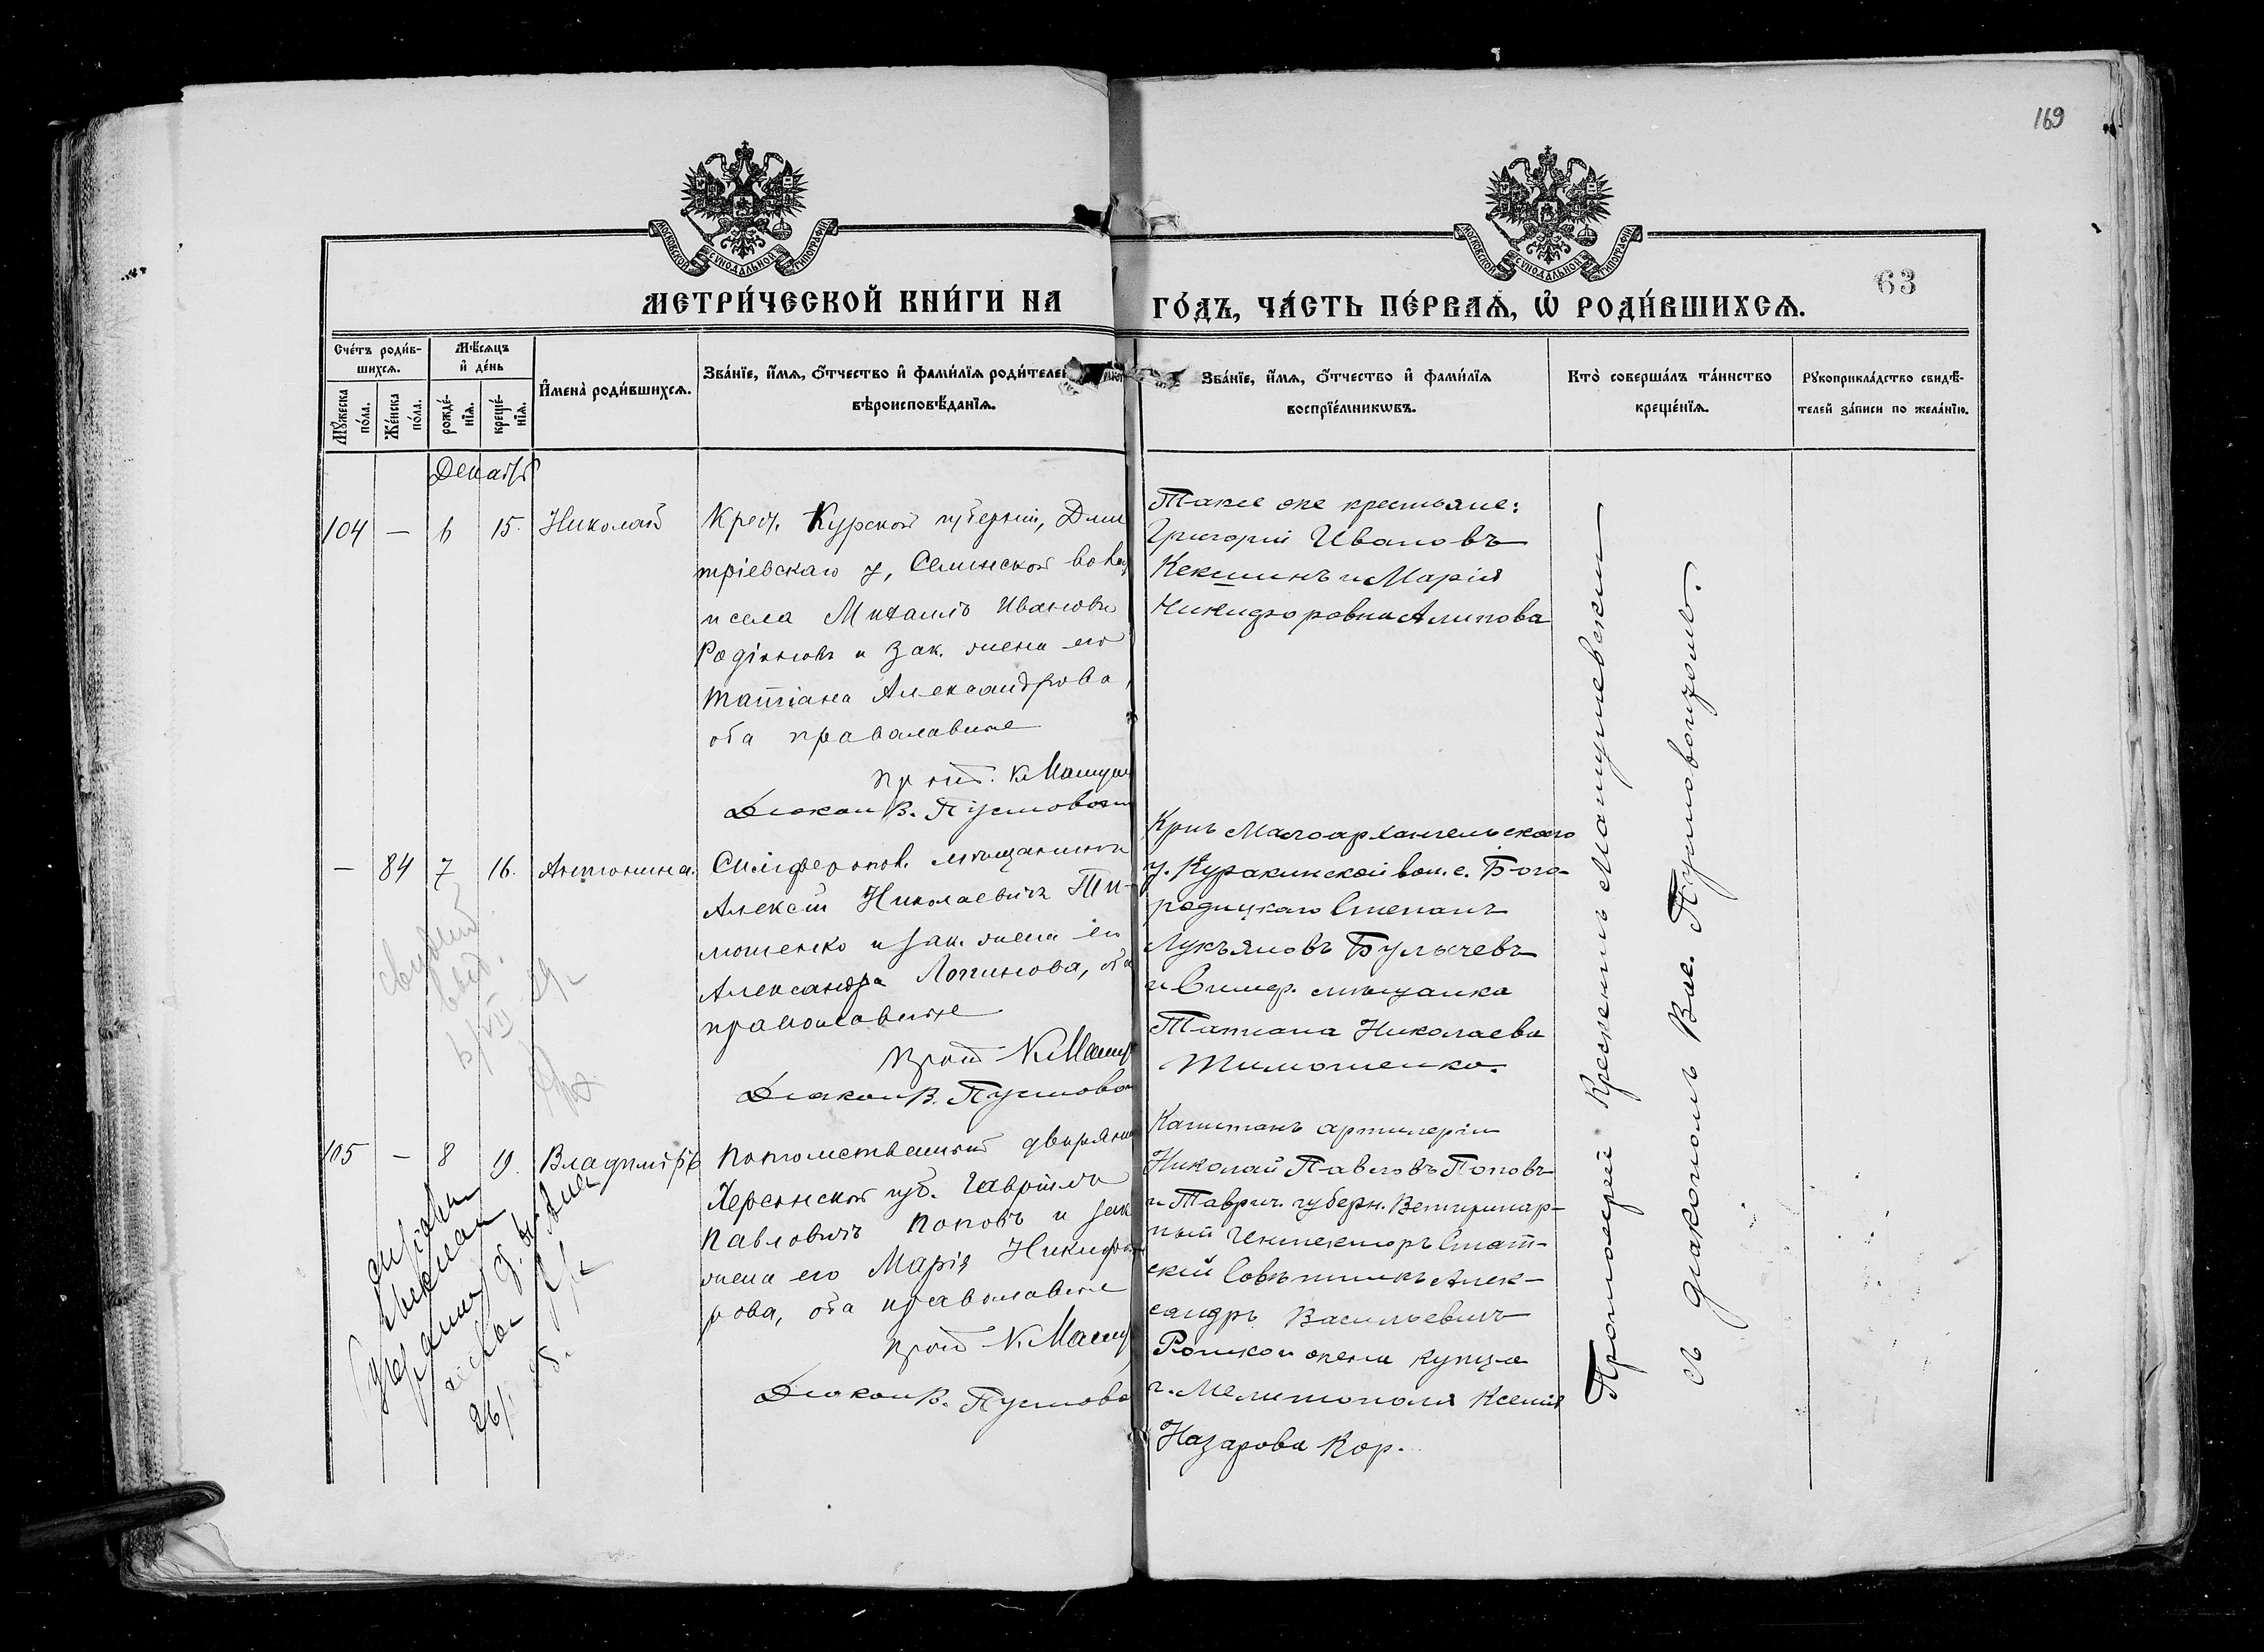 169
МОСКОВСКОЙ СѴНОДАЛЬНОЙ ТИПОГРАФІИ
МОСКОВСКОЙ СѴНОДАЛЬНОЙ ТИПОГРАФІИ
63
МЕТРИ́ЧЕСКОЙ КНИ́ГИ НА ГО́ДЪ, ЧА́СТЬ ПЕ́РВАѦ, Ѡ҆ РОДИ́ВШИХСѦ.
Сче́тъ роди́в-
шихсѧ.
Мѣ́сѧцъ
и҆ де́нь
Мꙋ́жеска
по́ла.
Же́нска
по́ла.
рожде́-
нїѧ.
креще́-
нїѧ.
И҆мена̀ роди́вшихсѧ.
Зва́нїе, и҆́мѧ, ѻ҆́тчество и҆ фами́лїѧ роди́телей
вѣроисповѣ́данїѧ.
Зва́нїе, и҆́мѧ, ѻ҆́тчество и҆ фами́лїѧ
воспрїе́мникѡвъ.
Кто̀ соверша́лъ та́инство
креще́нїѧ.
Рꙋкоприкла́дство свидѣ́-
телей за́писи по жела́нїю.
Декабрь
104 — 6 15. Николай
Крест. Курской губерніи, Дми
тріевскаго у, Селинской вол
и села Михаилъ Ивановъ
Родіоновъ и зак. жена его
Татіана Александрова,
оба православные
прот. К. Машук
Діакон В. Пустовой
Также же крестьяне:
Григорій Ивановъ
Кекшинъ и Марія
Никифоровна Алипова
— 84 7 16. Антонина.
Симфероп. мѣщанинъ
Алексій Николаевичъ Ти-
мошенко и зак. жена его
Александра Логинова, оба
православные
Прот К. Машу
Діакон В. Пустово
Крнъ Малоархангельскаго
у. Куракинской вол. с. Бого-
родицкаго Степанъ
Лукъяновъ Булычевъ
и Симф. мѣщанка
Татиана Николаева
Тимошенко.
105 — 8 19. Владиміръ
Потомственный дворянин
Херсонской губ. Гавріилъ
Павловичъ Поповъ и зак
жена его Марія Никифо
рова, оба православные
Прот К. Машу
Діакон В. Пустово
Капитанъ артилеріи
Николай Павловъ Поповъ
и Таврич. губерн. Ветеринар-
ный Инспекторъ Стат-
скій Совѣтникъ Алек-
сандръ Васильевичъ
Ромко и жена купца
г. Мелитополя Ксенія
Назарова Кор.
Протоіерей
съ діакономъ Вас. Пустовойтомъ.